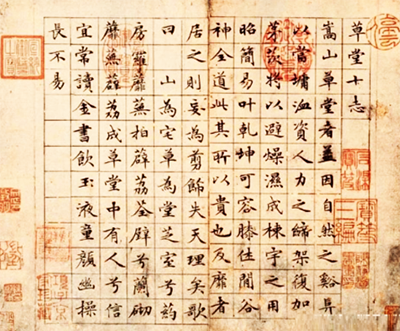 草堂十志
嵩山草堂者盖因自然之谿阜
以當墉洫資人力之締架復加
茅茨將以避燥濕成棟宇之用
昭簡易叶乾坤可容膝休閒谷
神全道此其所以貴也及靡者
居之則妄為剪飾失天理矣歌
曰山為宅草為堂芝室兮药
房羅蘼蕪拍薜荔荃壁兮蘭砌
蘼蕪薜荔成草堂中有人兮信
宜常讀金書飲玉液童顏幽操
長不易